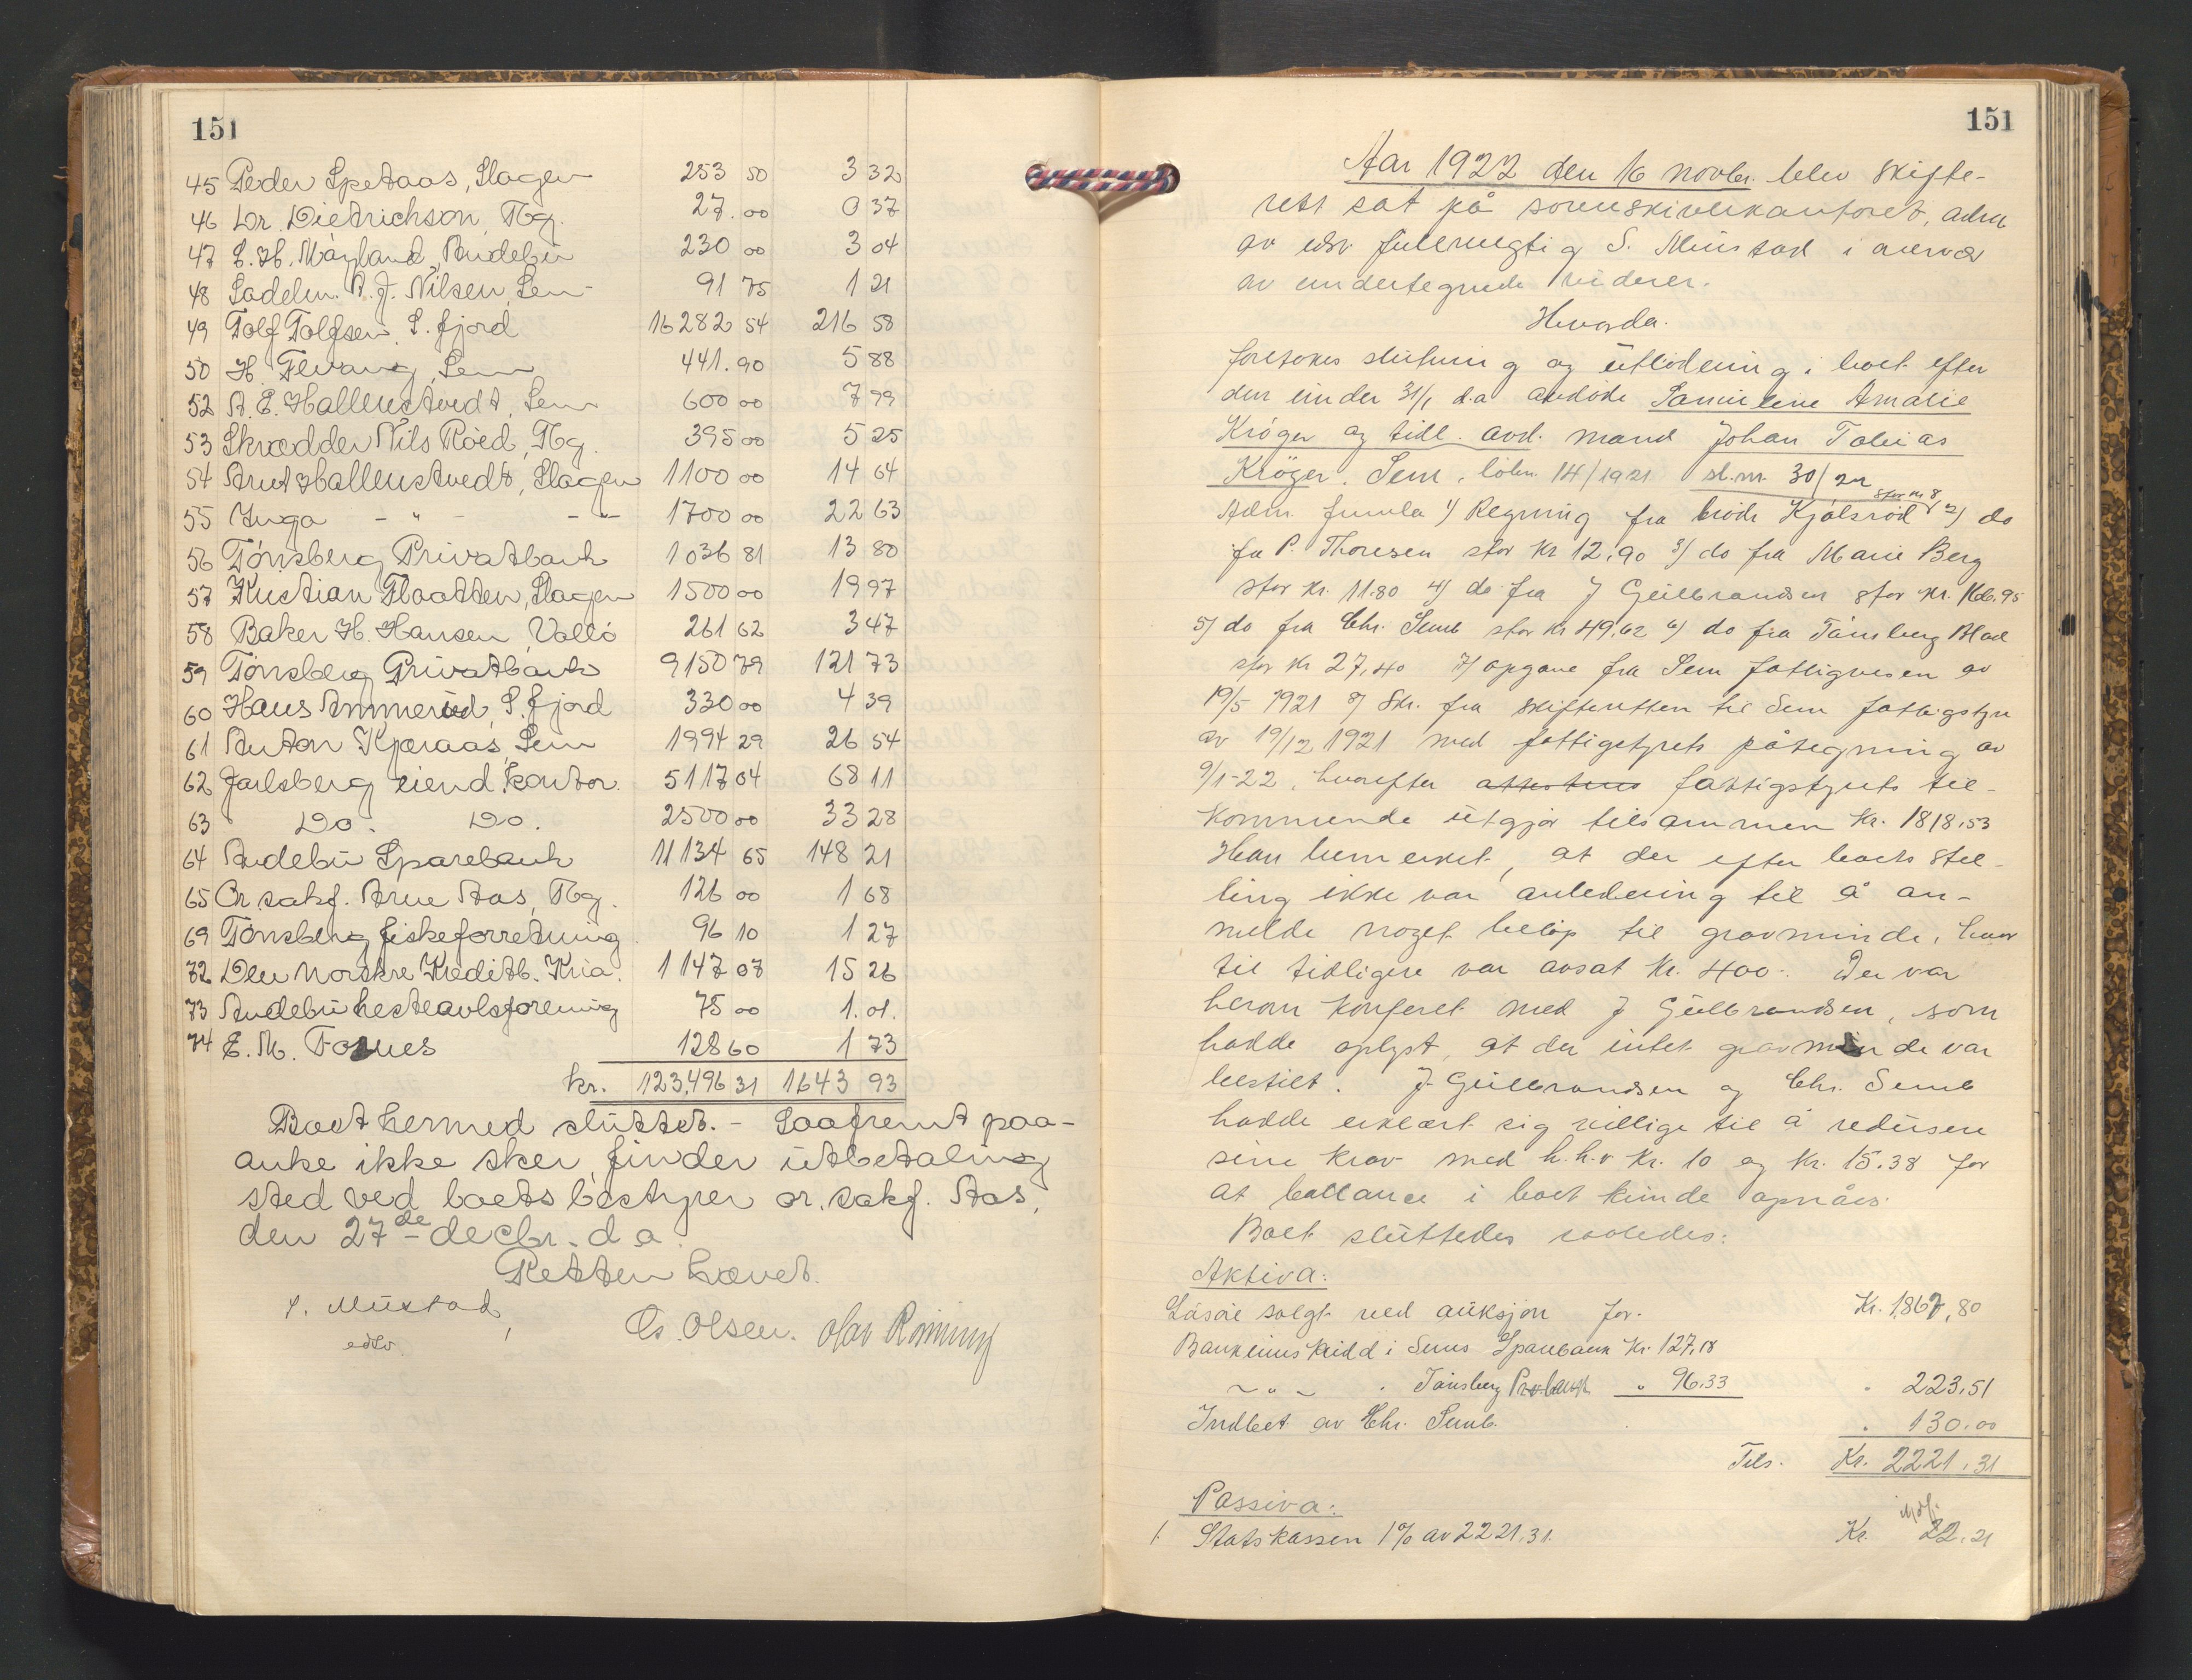 151
45 Peder Spetaas, Slagen 253 50 3 32
46 Dr. Dietrichson, Tbg. 27.00 0 37
47 E. H. Møyland, Andebu 230 00 3 04
48 Sadelm. A. J. Nilsen, Sem 91 75 1 21
49 Tolf Tolfsen, S. fjord 16282 54 216 58
50 H. Flvang, Sem 441.90 5 88
52 A. E. Hallenstvedt, Sem 600 00 7 99
53 Skrædder Nils Röed, Tbg. 395 00 5 25
54 Arnt Hallenstvedt, Slagen 1100 00 14 64
55 Inga - " - - " - 1700 00 22 63
56 Tønsberg Privatbank 1036 81 13 80
57 Kristian Flaatten, Slagen 1500 00 19 97
58 Baker H. Hansen, Vallö 261 62 3 47
59 Tønsberg Privatbank 9150 79 121 73
60 Hans Ammerud, S. fjord 330 00 4 39
61 Anton Kjæraas, Sem 1994 29 26 54
62 Jarlsberg eiend. kontor. 5117 04 68 11
63 Do. Do. 2500 00 33 28
64 Andebu Sparebank 11134 65 148 21
65 Or. sakf. Arne Aas, Tbg. 126 00 1 68
69 Tønsberg fiskeforretning 96 10 1 27
72 Den norske Kreditb. Kria. 1147 07 15 26
73 Andebu hesteavlsforening 75 00 1.01.
74 E. M. Fosnes 128 60 1 73
kr. 123,496 31 1643 93
Boet hermed sluttet. - Saafremt paa-
anke ikke sker, finder utbetaling
sted ved boets bestyrer or. sakf. Aas,
den 27de decbr. d. a.
Retten hævet.
S. Mustad
edsv.
Os. Olsen. Olav Rönning
151
Aar 1922 den 16 novbr. blev skifte-
rett sat på sorenskriverkontoret, adm
av edsv. fuldmegtig S. Mustad i overvær
av undertegnede vidner.
Hvorda.
foretokes slutning og utlodning i boet efter
den under 31/1 d.a avdöde Samueline Amalie
Kröger og tidl. avd. mand Johan Tobias
Kröger. Sem, löbn. 14/1921 sl.nr. 30/22
Adm fremla 1) Regning fra brödr Kjølsröd stor kr 8, 2) do
fra P. Thoresen stor kr 12,90 3) do fra Marie Berg
stor kr. 11.80 4) do fra J Gulbrandsen stor kr. 166.95
5) do fra Chr. Semb stor kr 49,62 6) do fra Tönsberg Blad
stor kr 27,40 7) opgave fra Sem fattigvesen av
19/5 1921 8) Skr. fra skifteretten til Sem fattigstyre
av 19/12 1921 med fattigstyrets påtegning av
9/1-22, hvorefter fattigstyrets til-
kommende utgjør tilsammen kr. 1818,53
Han bemerket, at der efter boets stil-
ling ikke var anledning til å an-
melde noget belöp til gravminde, hvor
til tidligere var avsat kr. 400.- Der var
herom konferet med J Gulbrandsen, som
hadde oplyst, at der intet gravminde var
bestilt. J. Gulbrandsen og Chr. Semb
hadde erklært sig villige til å redusere
sine krav med h.h.v kr. 10 og kr. 15.38 for
at ballance i boet kunde opnåes.
Boet sluttedes saaledes:
Aktiva:
Lösöre solgt ved auksjon for. Kr. 1867,80
Bankinnskudd i Sems Sparebank Kr. 127,18
- " - " Tönsberg Pr.bank " 96.33 " 223,51
Indbet av Chr. Semb. " 130.00
Tils. Kr. 2221,31
Passiva:
1. Statskassen 1% av 2221,31. Kr. 22.21